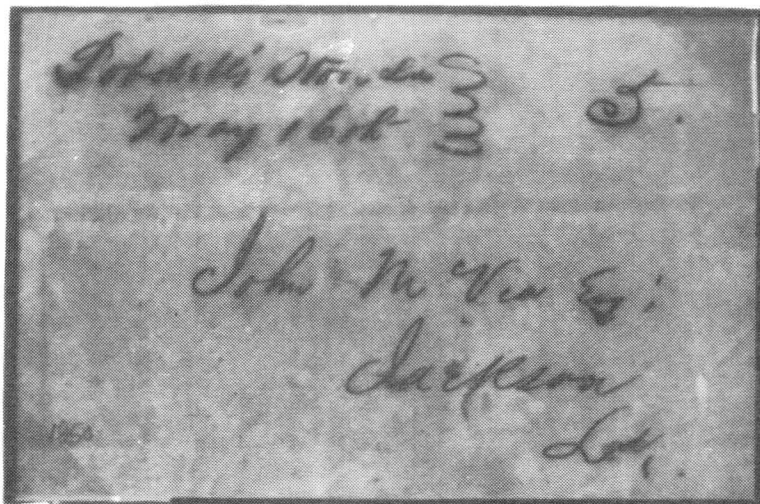 Store, La
May 16th 5.
John McVea Esq.
Jackson
La,
1850